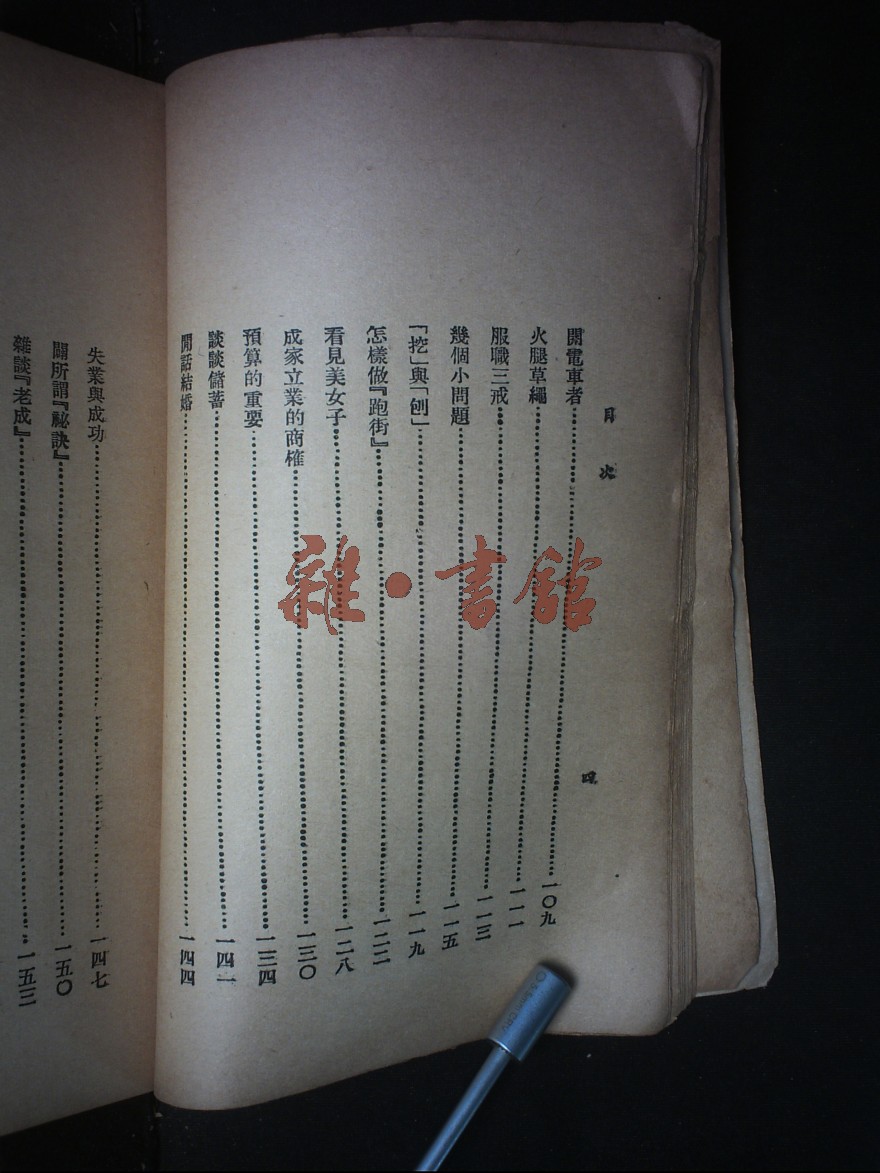 目次 四
開電車者 一〇九
火腿草繩 一一一
服職三戒 一一三
幾個小問題 一一五
「挖」與「刨」 一一九
怎樣做『跑街』 一二二
看見美女子 一二八
成家立業的商榷 一三〇
預算的重要 一三四
談談儲蓄 一四一
閒話結婚 一四四
失業與成功 一四七
闢所謂『祕訣』 一五〇
雜談『老成』 一五三
雜·書館